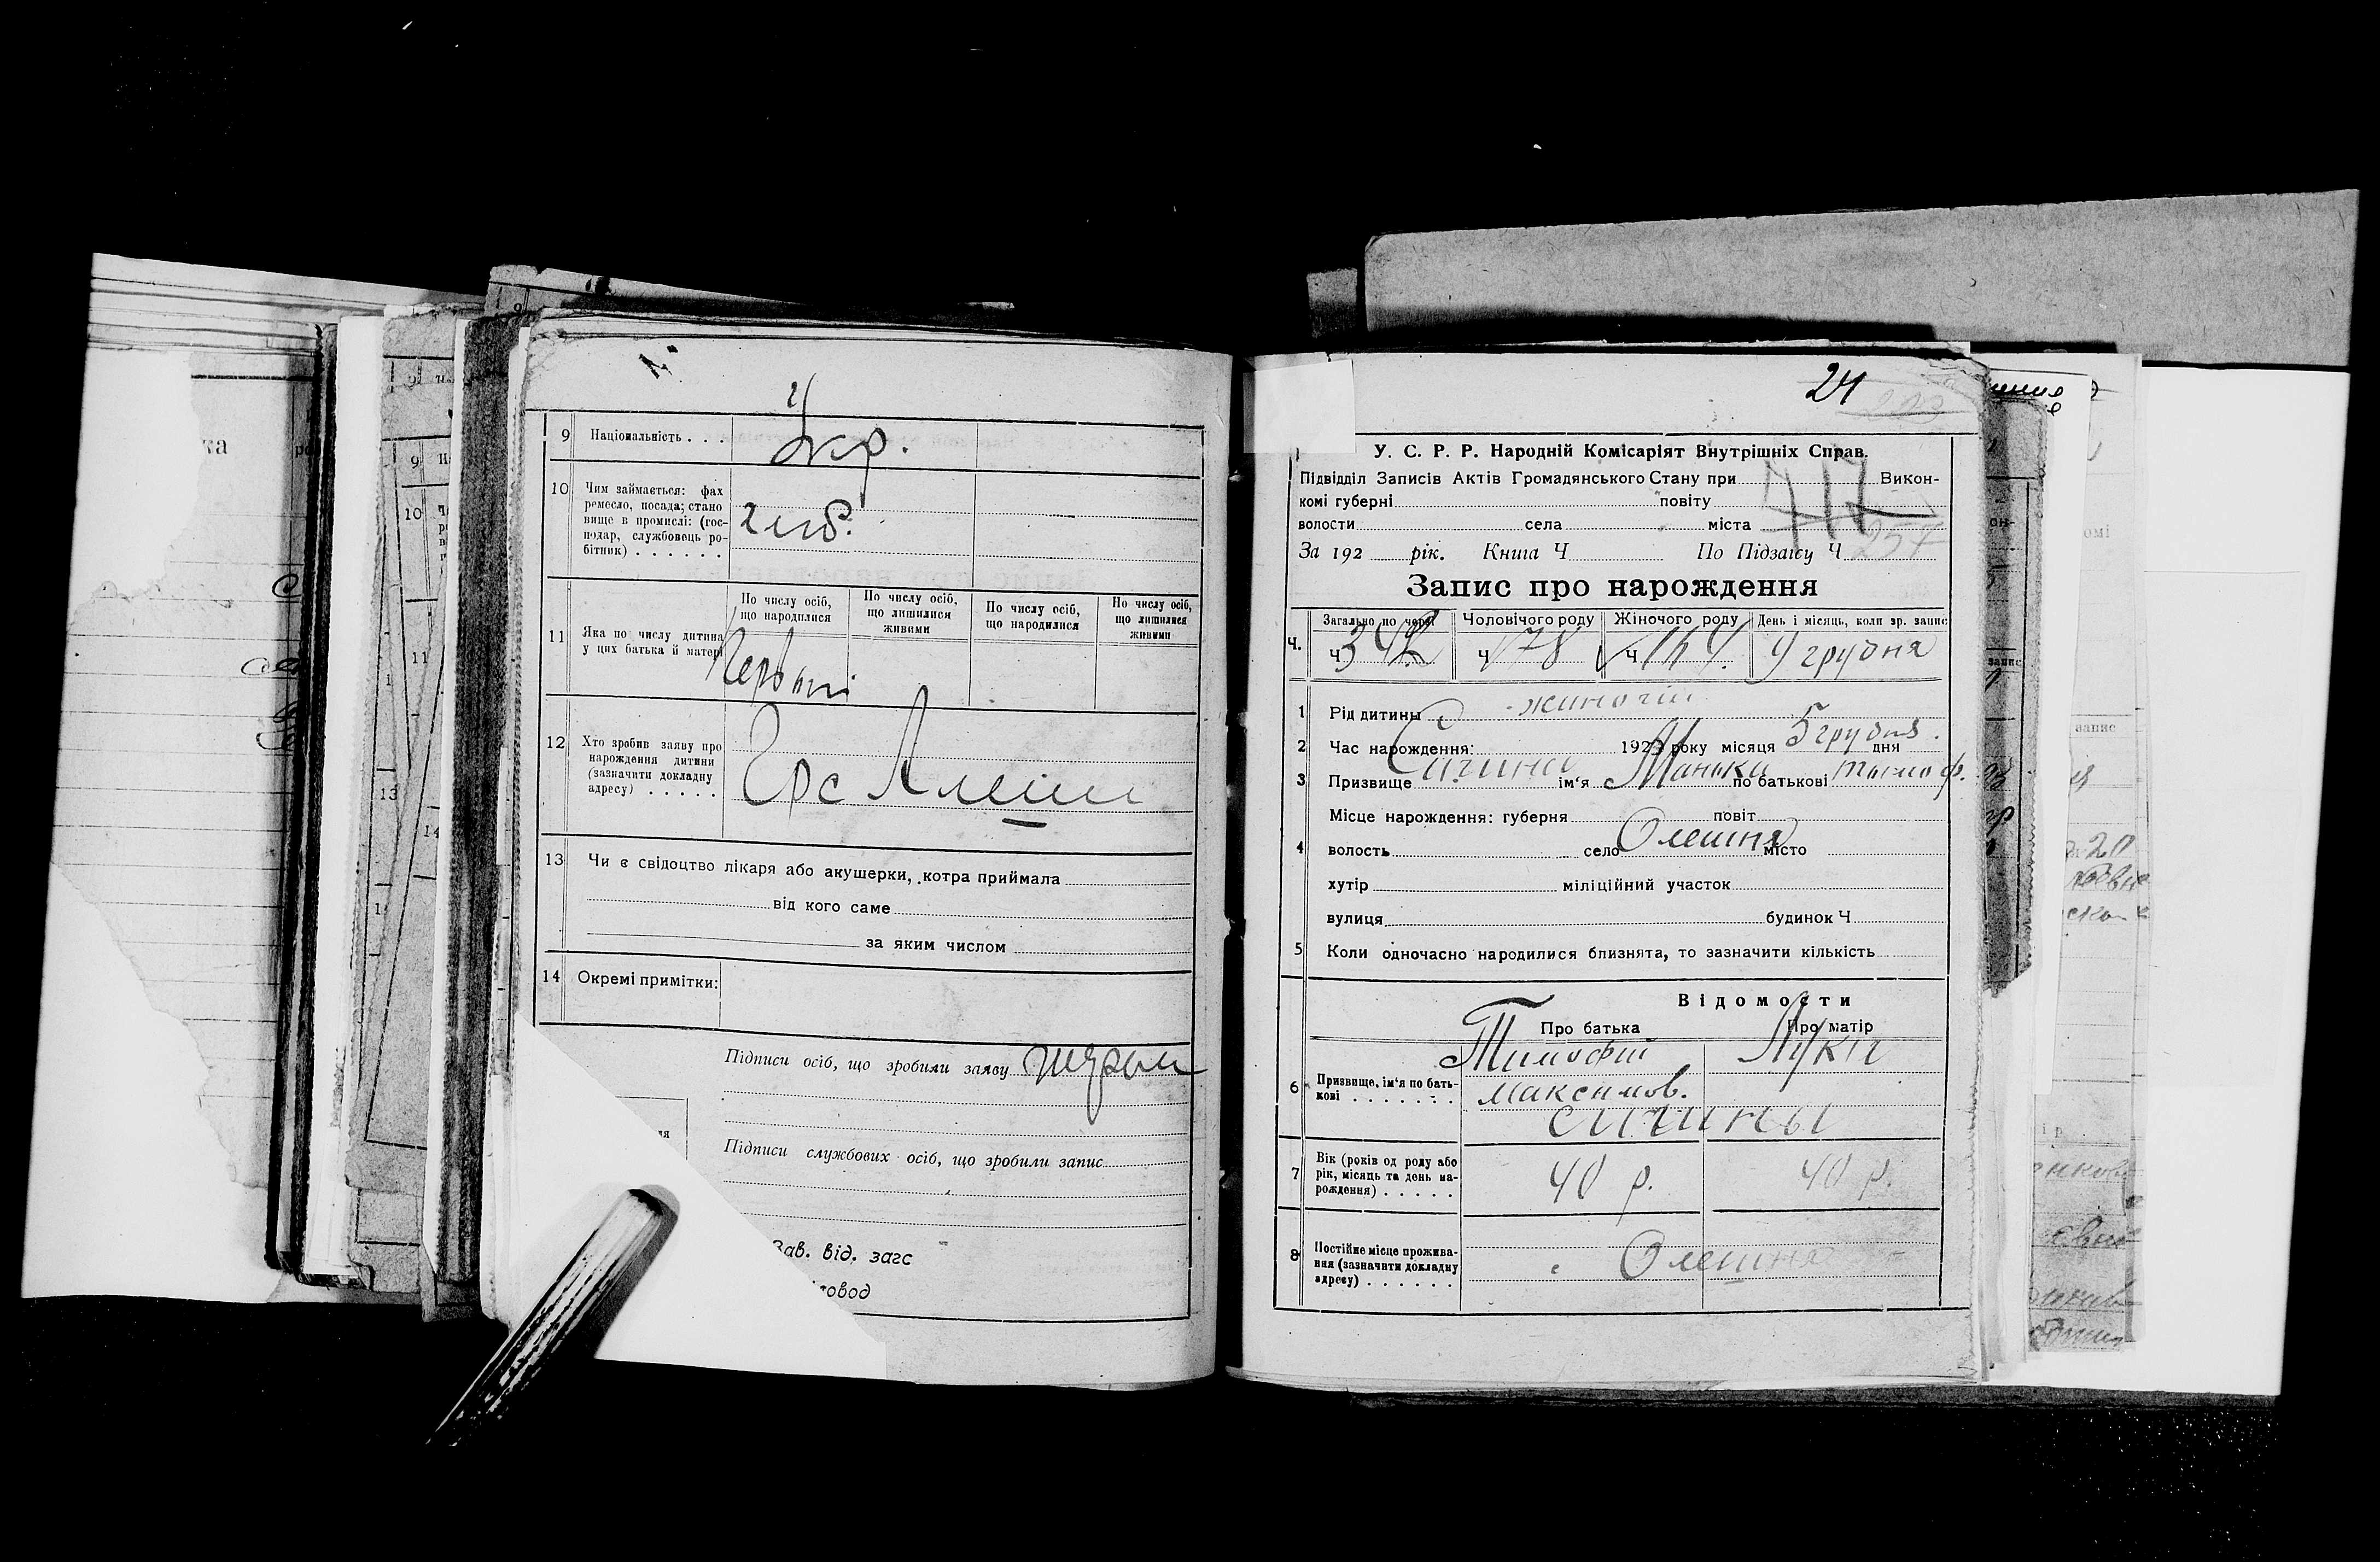 9 Національність . . . Укр.
10 Чим займається: фах
ремесло, посада; стано
вище в промислі: (гос-
подар, службовець ро-
бітник) . . . . . .
хліб.
По числу осіб, що народилися
По числу осіб, що лишилися живими
По числу осіб, що народилися
По числу осіб, що лишилися живими
11 Яка по числу дитина
у цих батька й матері
12 Хто зробив заяву про
нарождення дитини
(зазначити докладну
адресу) . . . . .
13 Чи є свідоцтво лікаря або акушерки, котра приймала
від кого саме
за яким числом
14 Окремі примітки:
Підписи осіб, що зробили заяву
Підписи службових осіб, що зробили запис
Зав. від. загс
24
У. С. Р. Р. Народній Комісаріят Внутрішніх Справ.
Підвідділ Записів Актів Громадянського Стану при Викон-
комі губерні повіту
волости села міста
417
За 192 рік. Книга Ч По Підзагсу Ч 257
Запис про нарождення
Загально по черзі Чоловічого роду Жіночого роду День і місяць, коли зр. запис
Ч. Ч 342 Ч 178 Ч 164. 9 грудня
1 Рід дитини жиночій
2 Час нарождення: 1923 року місяця 5 грудня дня
3 Призвище Сичина ім'я Манька по батькові Тимоф.
Місце нарождення: губерня повіт
4 волость село Олешня місто
хутір міліційний участок
вулиця будинок Ч
5 Коли одночасно народилися близнята, то зазначити кількість
Відомости
Про батька Про матір
6 Призвище, ім'я по бать-
кові . . . . . . .
Тимофій
Максимов.
Лукія
сичины
7 Вік (років од роду або
рік, місяць та день на-
рождення) . . . . .
40 р. 40 р.
8 Постійне місце прожива-
ння (зазначити докладну
адресу) . . . . . .
с Олешня